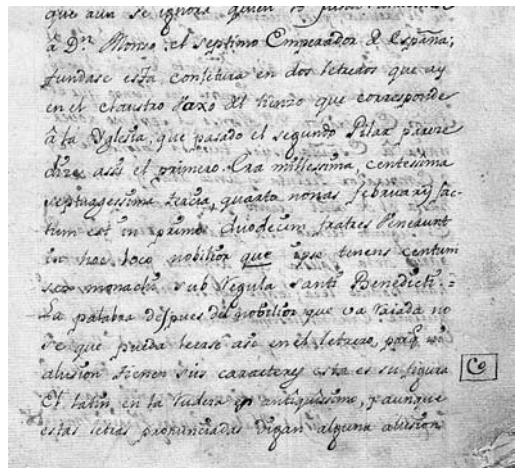 que aun se ignora quien lo
à Dn. Alonso el septimo Emperador d España;
fundase esta conjetura en dos letreros que ay
en el claustro vaxo del lienzo que corresponde
à la Yglesia, que pasado el segundo Pilar parece
dize assi el primero. Era millessima centessima
septuagessima tercia, quarto nonas februarij fac-
tum est in primo duodecim fratres veneaunt
in hoc loco nobilior que ipse tenens centum
sex monachi sub Regula santi Benedicti. =
La palabra despues del nobilior que va raiada no
se que pueda leerse assi en el letrero, porq. no
alusion tienen sus caracteres esta es su figura Co
El latin, en la rudera es antiquissimo, y aunque
estas letras pronunciadas digan alguna alusion